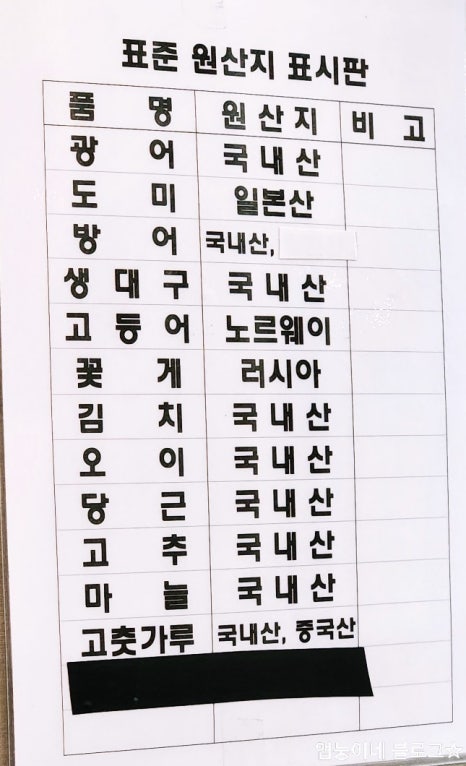 표준 원산지 표시판
품 명 원 산 지 비 고
광 어 국 내 산
도 미 일본산
방 어 국내산,
생 대 구 국 내 산
고 등 어 노르웨이
꽃 게 러시아
김 치 국 내 산
오 이 국 내 산
당 근 국 내 산
고 추 국 내 산
마 늘 국 내 산
고춧가루 국내산, 중국산